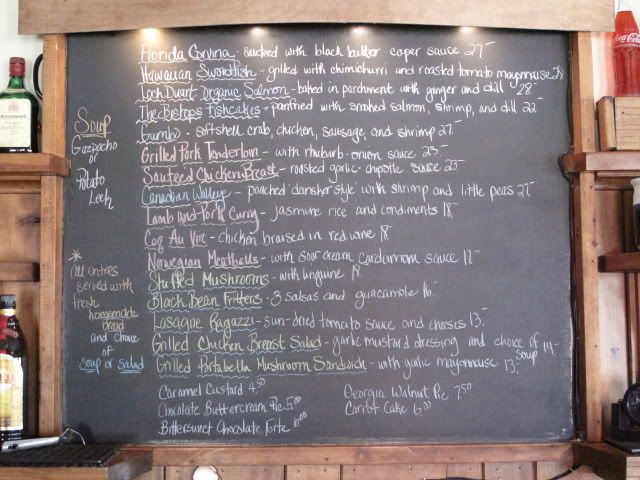 Florida Corvina - sauteed with black butter caper sauce 27.-
Hawaiian Swordfish - grilled with chimichurri and roasted tomato mayonnaise 28
Loch Duart Organic Salmon - baked in parchment with ginger and dill 28.-
The Bistops Fishcakes - panfried with smoked salmon, shrimp, and dill 22.-
Gumbo - softshell crab, chicken, sausage, and shrimp 27.-
Grilled Pork Tenderloin - with rhubarb-onion sauce 23.-
Sauteed Chicken Breast - roasted garlic-chipotle sauce 23-
Canadian Walleye - poached 'danish style' with shrimp and little peas 27.-
Lamb and Pork Curry - jasmine rice and condiments 18.-
Coq Au Vin - chicken braised in red wine 18.-
Norwegian Meatballs - with sour cream cardamom sauce 17.-
Stuffed Mushrooms - with linguine 18
Black Bean Fritters - 3 salsas and guacamole 16.-
Lasagne Ragazzi - sun-dried tomato sauce and cheeses 13.-
Grilled Chicken Breast Salad - garlic mustard dressing and choice of soup 14-
Grilled Portabella Mushroom Sandwich - with garlic mayonnaise 13.-
Caramel Custard 4.50
Chocolate Buttercream Pie 5.00
Bittersweet Chocolate Torte 6.00
Georgia Walnut Pie 7.50
Carrot Cake 6.00
Soup
Gazpacho
or
Potato
Leek
*
All entres
served with
fresh
homemade
bread
and choice
of
soup or salad
Coca-Cola